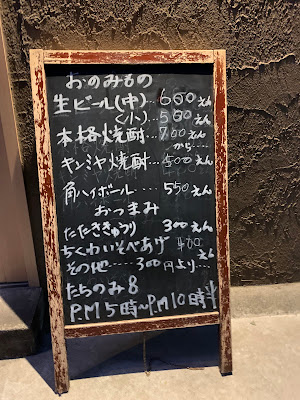 おのみもの
生ビール(中)…600えん
〃(小)…500えん
本格焼酎…700えん
から…
キンミヤ焼酎…500えん
角ハイボール…550えん
おつまみ
たたききゅうり 300えん
ちくわいそべあげ 400えん
その他……300円より…
たちのみ8
PM5時〜PM10時半